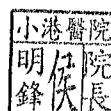 小港醫院
院長
侯
明鋒